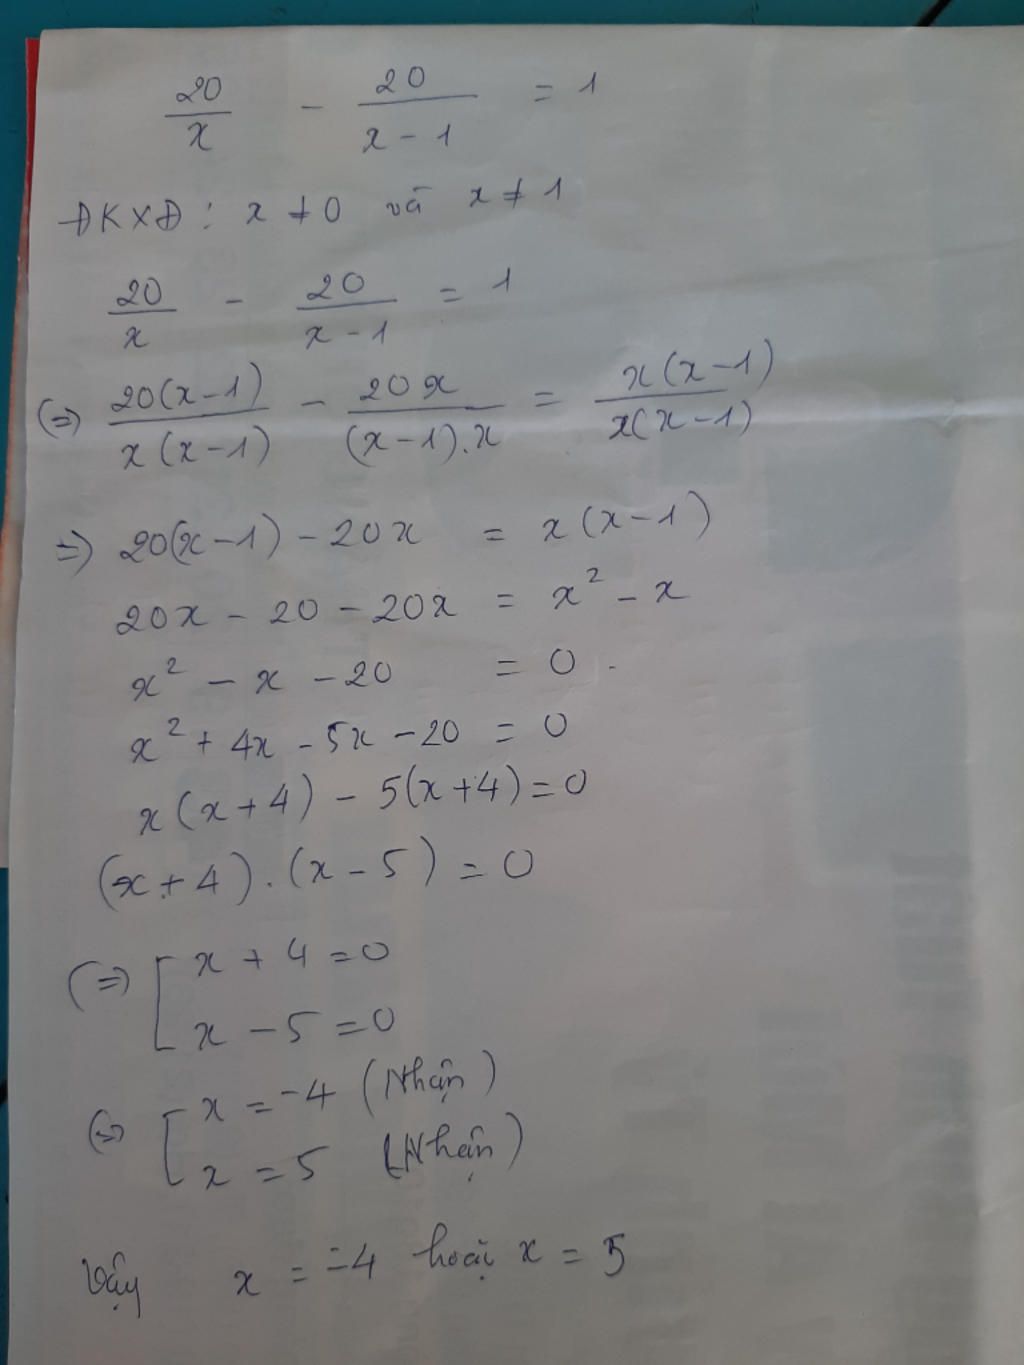 20/x - 20/(x-1) = 1
ĐKXĐ: x ≠ 0 và x ≠ 1
20/x - 20/(x-1) = 1
(=) 20(x-1)/x(x-1) - 20x/(x-1).x = x(x-1)/x(x-1)
=) 20(x-1) - 20x = x(x-1)
20x - 20 - 20x = x² - x
x² - x - 20 = 0
x² + 4x - 5x - 20 = 0
x(x+4) - 5(x+4) = 0
(x+4).(x-5) = 0
(=) [ x + 4 = 0
x - 5 = 0
(=) [ x = -4 (Nhận)
x = 5 (Nhận)
Vậy x = -4 hoặc x = 5